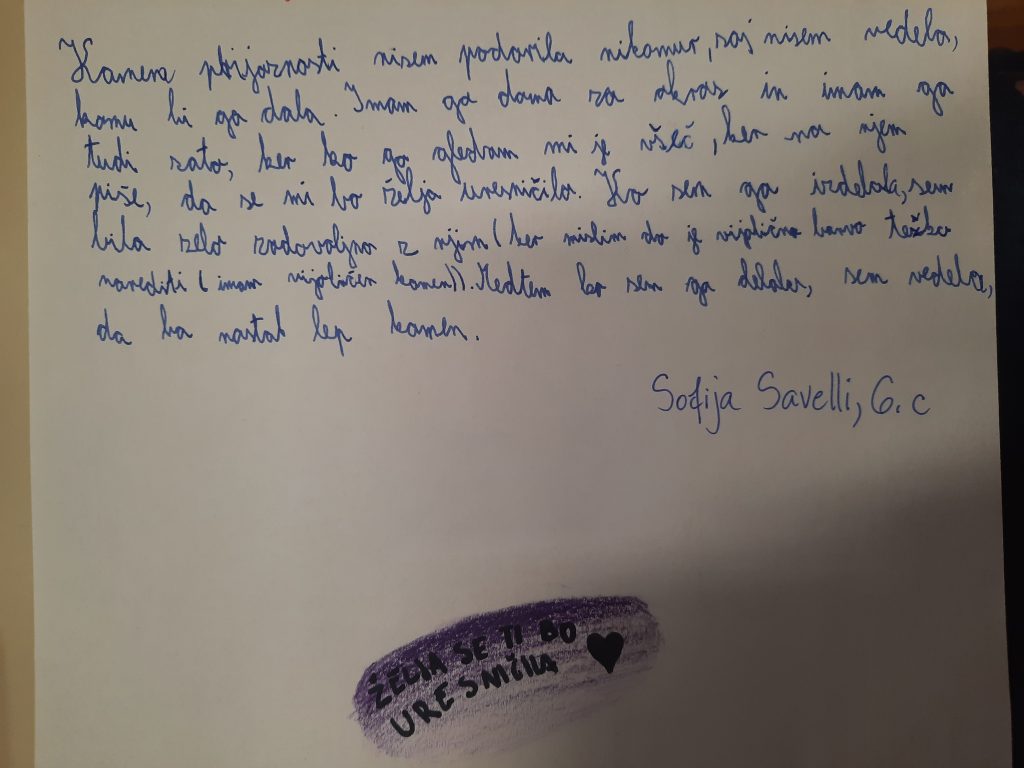 Kamena prijaznosti nisem podarila nikomur, saj nisem vedela,
komu bi ga dala. Imam ga doma za okras in imam ga
tudi zato, ker ko ga gledam mi je všeč, ker na njem
piše, da se mi bo želja uresničila. Ko sem ga izdelala, sem
bila zelo zadovoljna z njim (ker mislim da je vijolično barvo težko
narediti (imam vijoličen kamen)). Medtem ko sem ga delala, sem vedela,
da bo nastal lep kamen.
Sofija Savelli, 6. c
ŽELJA SE TI BO
URESNIČILA